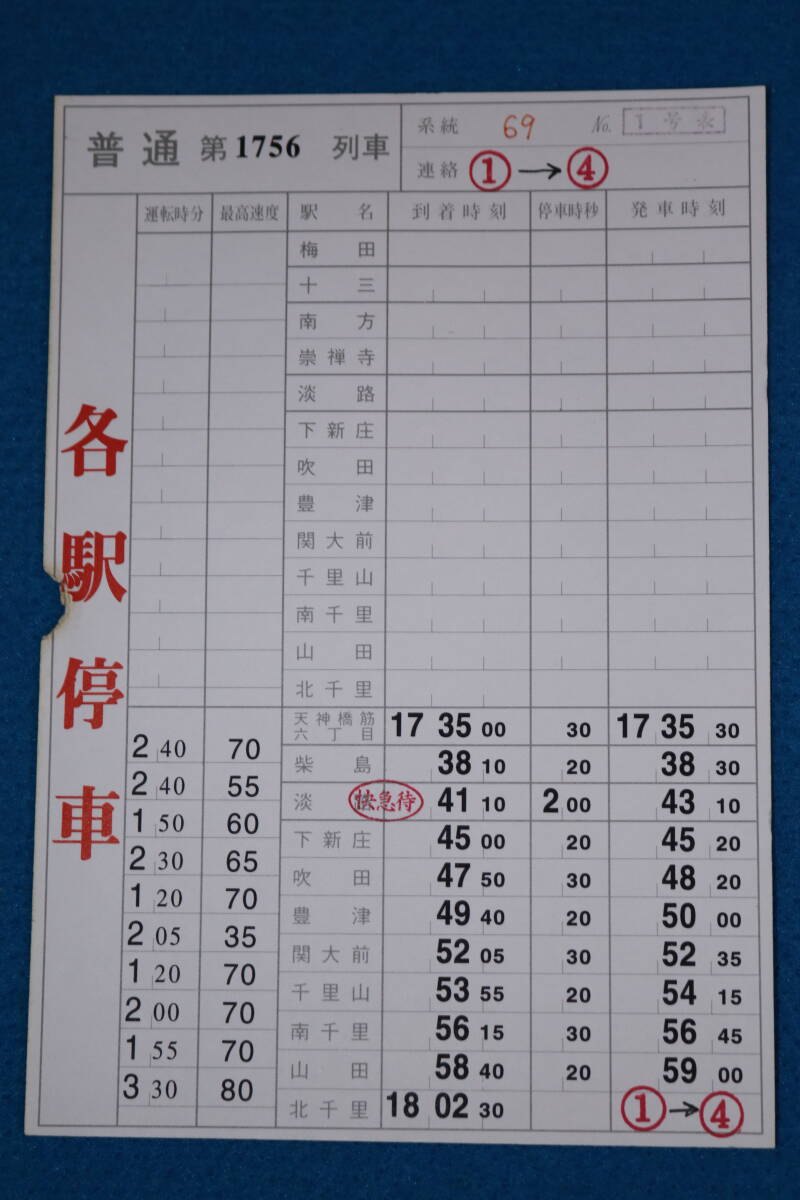 普通 第 1756 列車
系統 69 No. 1号表
連絡 ① → ④
各駅停車
運転時分 最高速度 駅名 到着時刻 停車時秒 発車時刻
梅田
十三
南方
崇禅寺
淡路
下新庄
吹田
豊津
関大前
千里山
南千里
山田
北千里
天神橋筋六丁目 17 35 00 30 17 35 30
2 40 70
柴島 38 10 20 38 30
2 40 55
淡 快急待 41 10 2 00 43 10
1 50 60
下新庄 45 00 20 45 20
2 30 65
吹田 47 50 30 48 20
1 20 70
豊津 49 40 20 50 00
2 05 35
関大前 52 05 30 52 35
1 20 70
千里山 53 55 20 54 15
2 00 70
南千里 56 15 30 56 45
1 55 70
山田 58 40 20 59 00
3 30 80
北千里 18 02 30 ① → ④